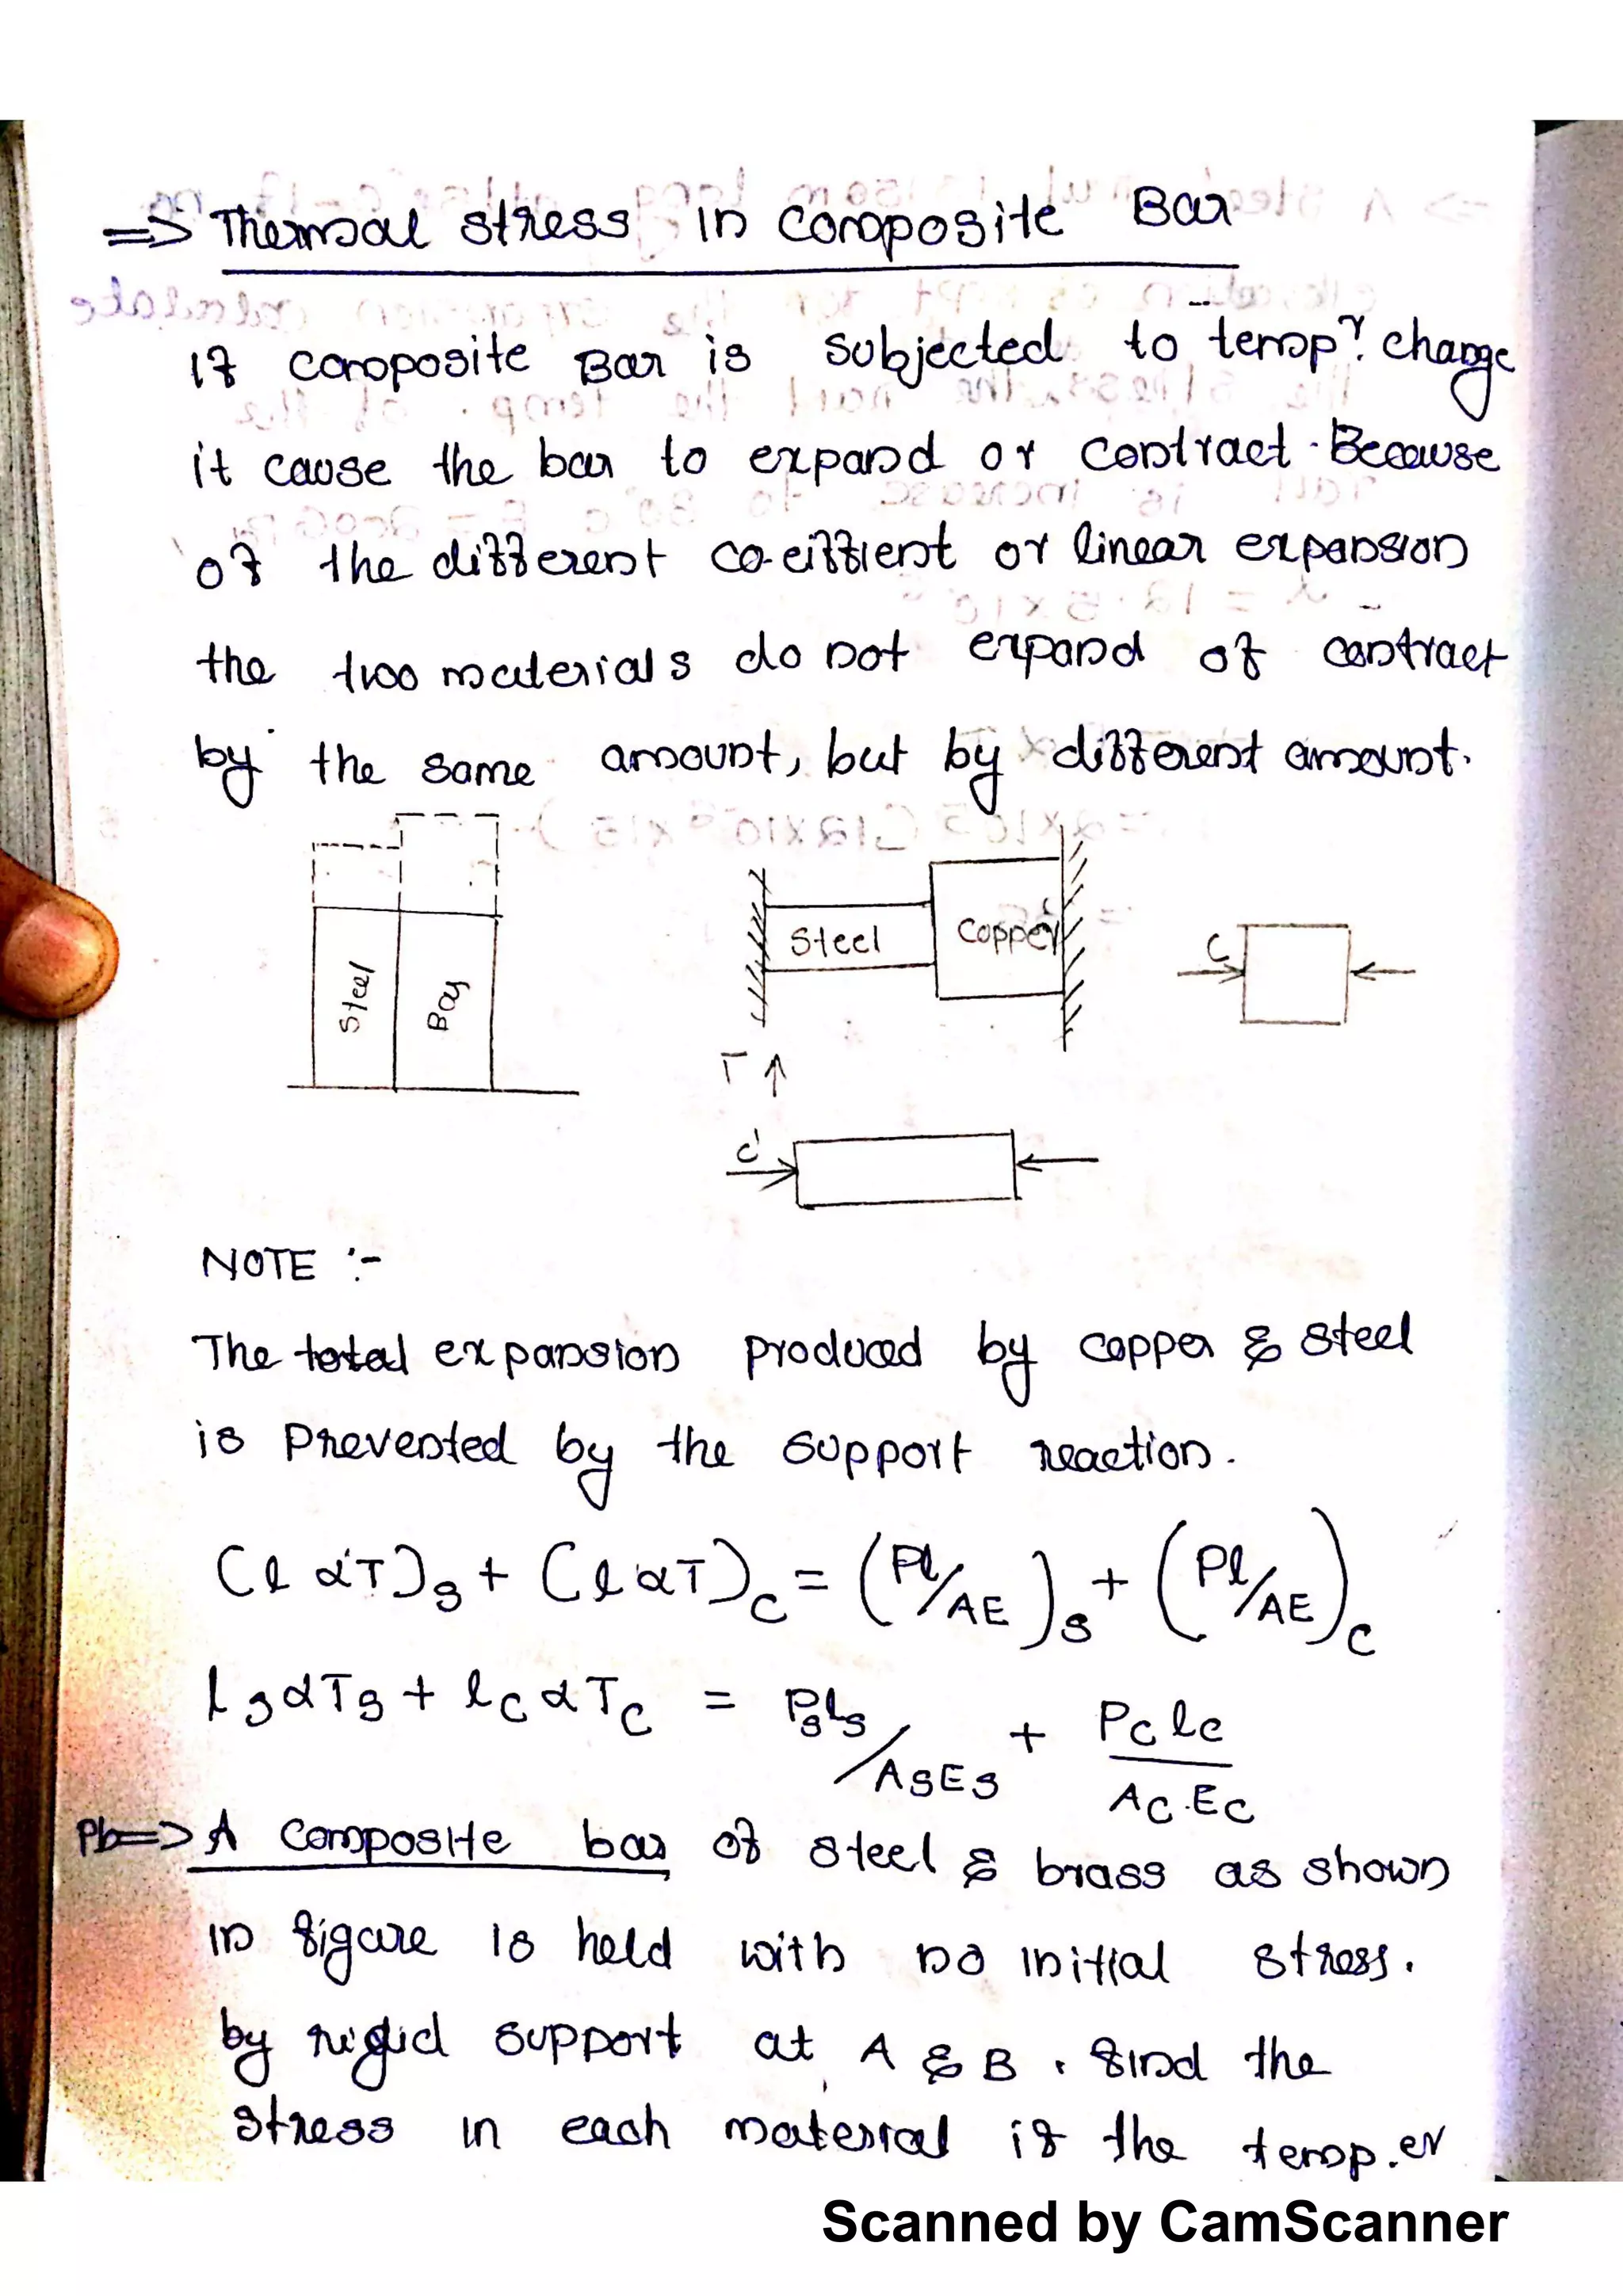 => Thermal stress in composite Bar
If composite Bar is subjected to tempr. change
it cause the bar to expand or contract. Because
of the different co-eiffient or linear expansion
the two materials do not expand of contract
by the same amount, but by different amount.
Steel
Steel
Copper
C
T ↑
C
NOTE :-
The total expansion produced by copper & steel
is prevented by the support reaction.
(l αT)s + (l αT)c = (Pl/AE)s + (Pl/AE)c
lsαTs + lcαTc = Psls/AsEs + Pclc/Ac.Ec
Pb=> A composite bar of steel & brass as shown
in figure is held with no initial stress.
by rigid support at A & B. find the
stress in each material if the temp.er
Scanned by CamScanner